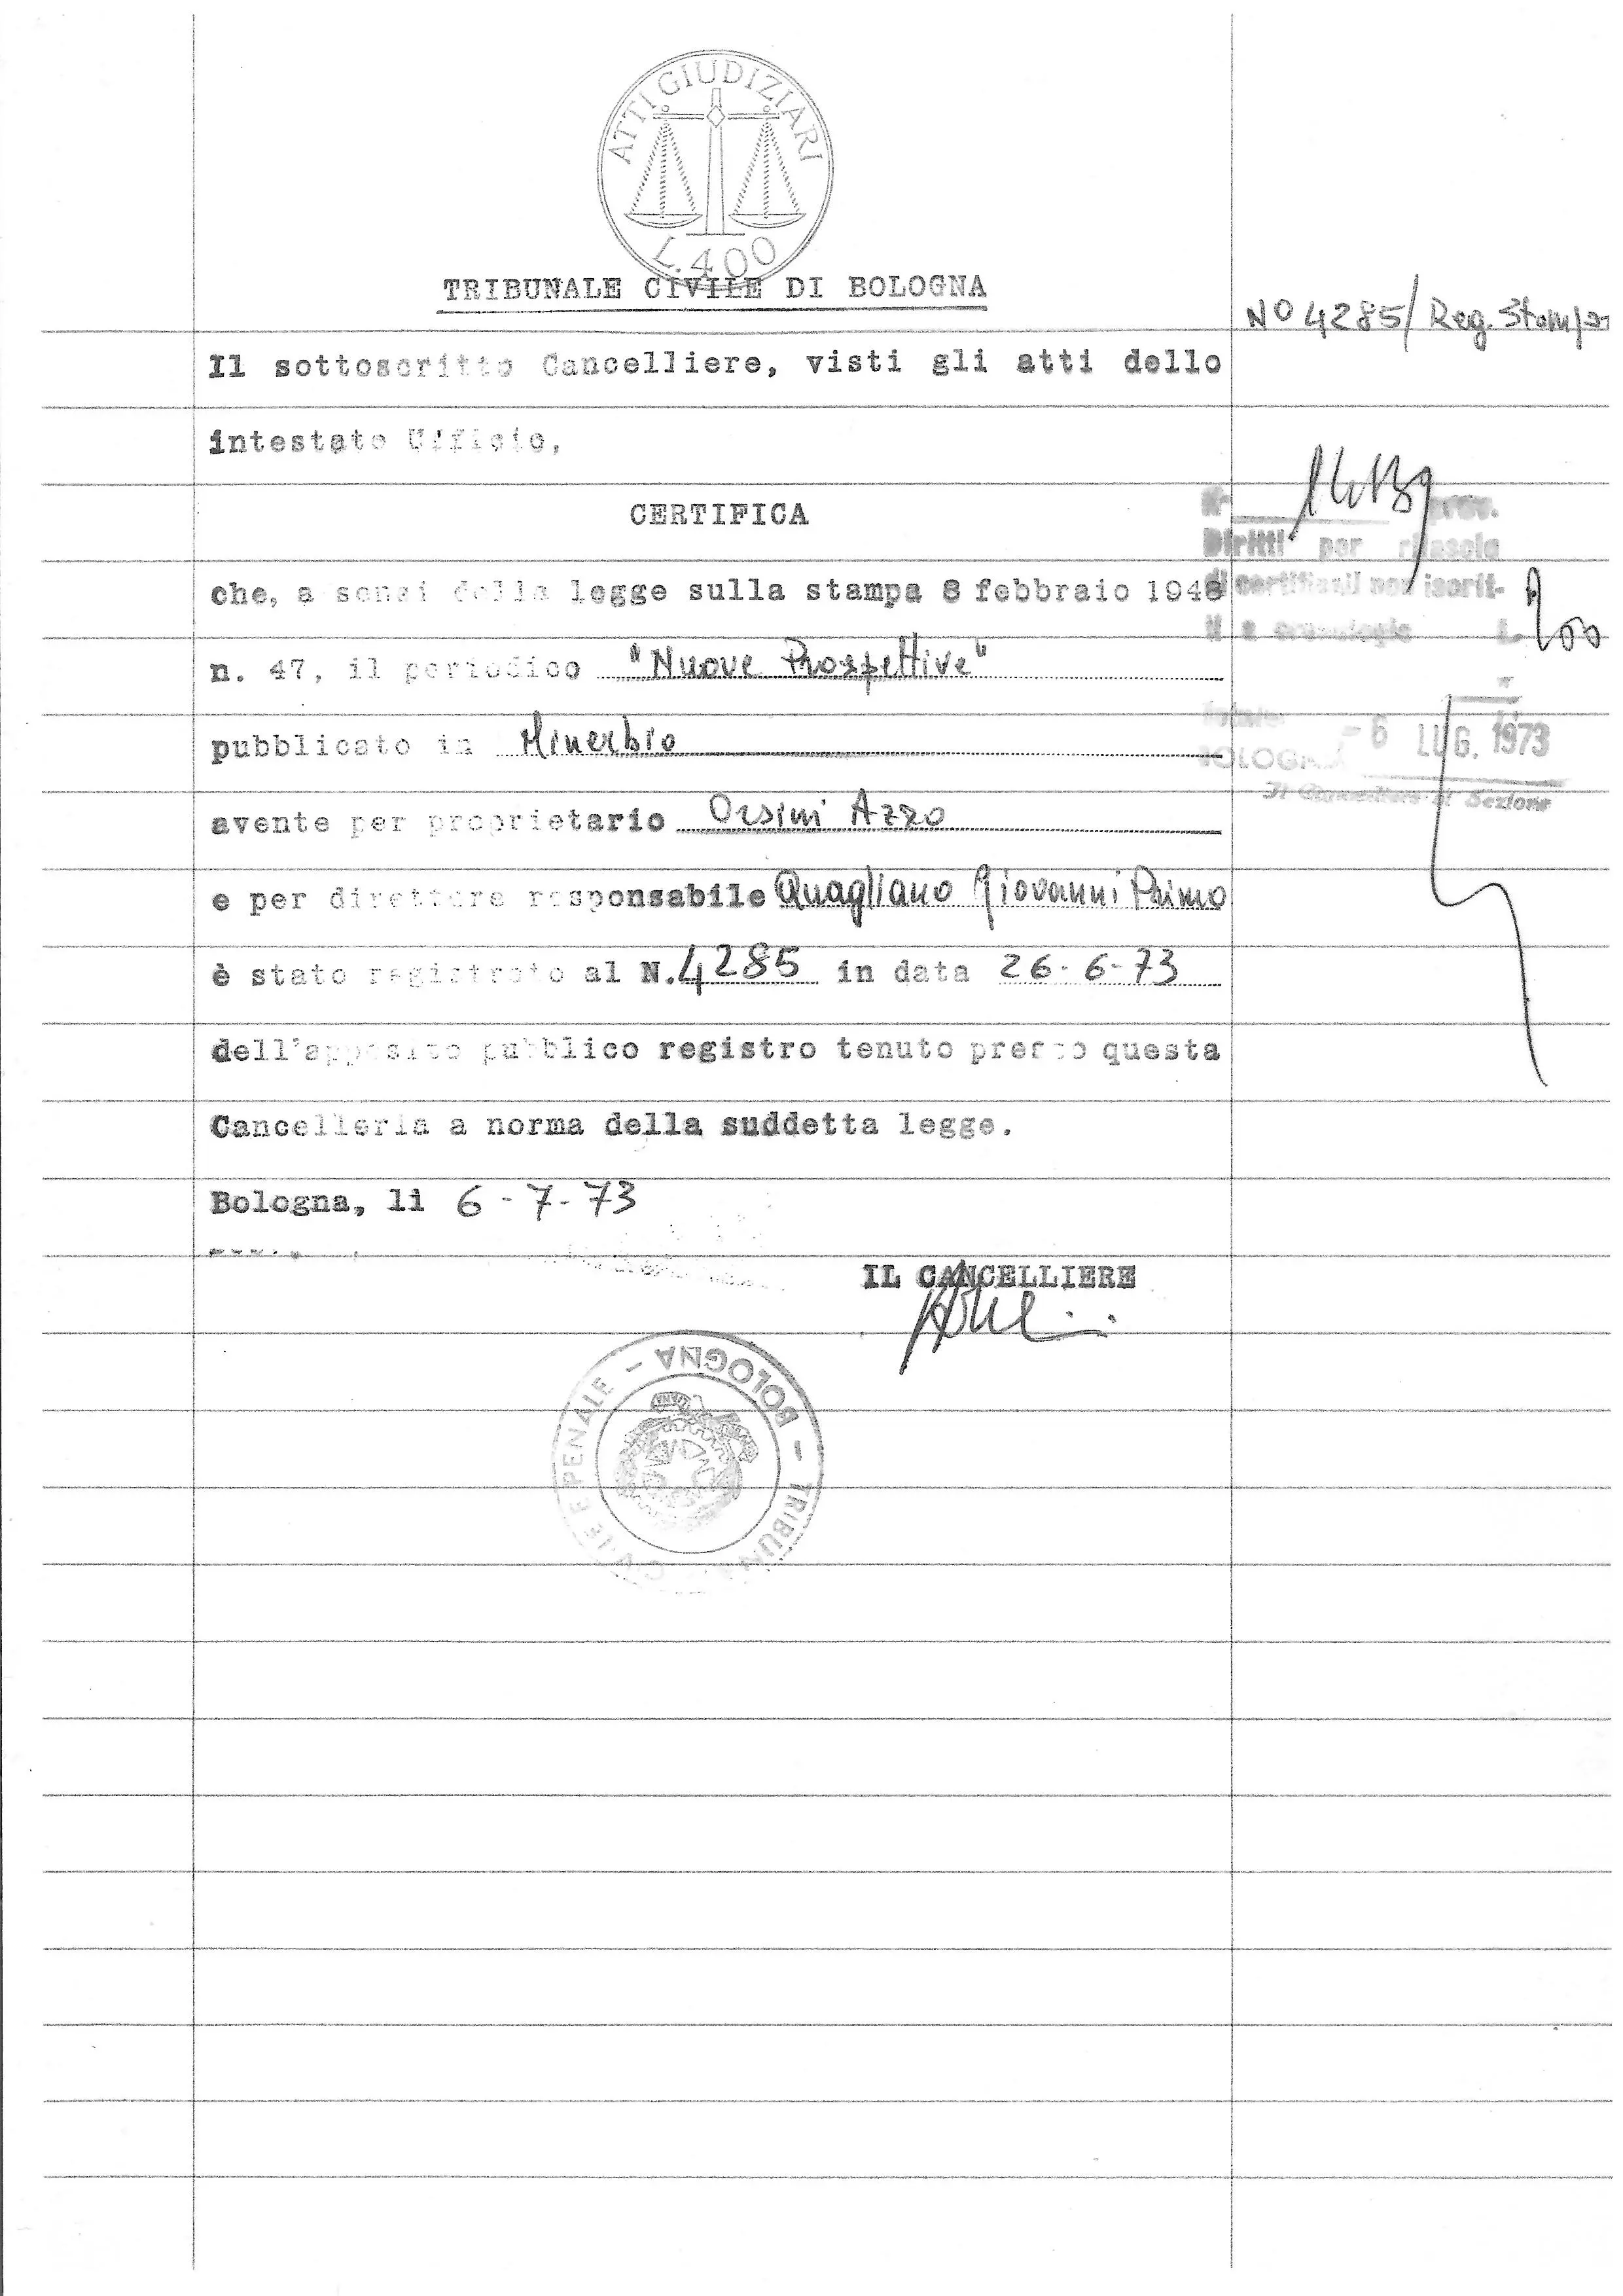 ATTI GIUDIZIARI
L.400
TRIBUNALE CIVILE DI BOLOGNA
N° 4285/ Reg. Stampa
Il sottoscritto Cancelliere, visti gli atti dello
intestato Ufficio,
CERTIFICA
che, a sensi della legge sulla stampa 8 febbraio 1948
n. 47, il periodico "Nuove Prospettive"
pubblicato in Minerbio
avente per proprietario Orsini Azzo
e per direttore responsabile Quagliano Giovanni Primo
è stato registrato al N. 4285 in data 26-6-73
dell'apposito pubblico registro tenuto presso questa
Cancelleria a norma della suddetta legge.
Bologna, lì 6-7-73
IL CANCELLIERE
prov.
Diritti per rilascio
di certificati
L.
Totale
BOLOGNA - 6 LUG. 1973
Il Cancelliere di Sezione
TRIBUNALE CIVILE E PENALE - BOLOGNA -